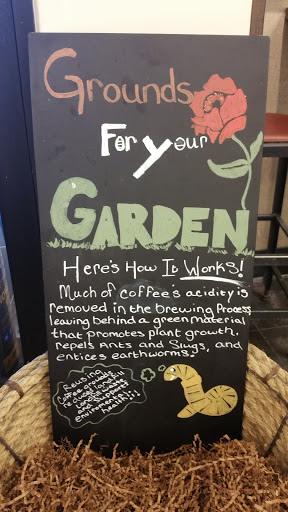 Grounds
For Your
GARDEN
Here's How It Works!
Much of coffee's acidity is
removed in the brewing process
leaving behind a green material
that promotes plant growth,
repels Ants and Slugs, and
entices earthworms.
Reusing
Coffee grounds
reduces landfill
waste
and supports
environmental
health!!!